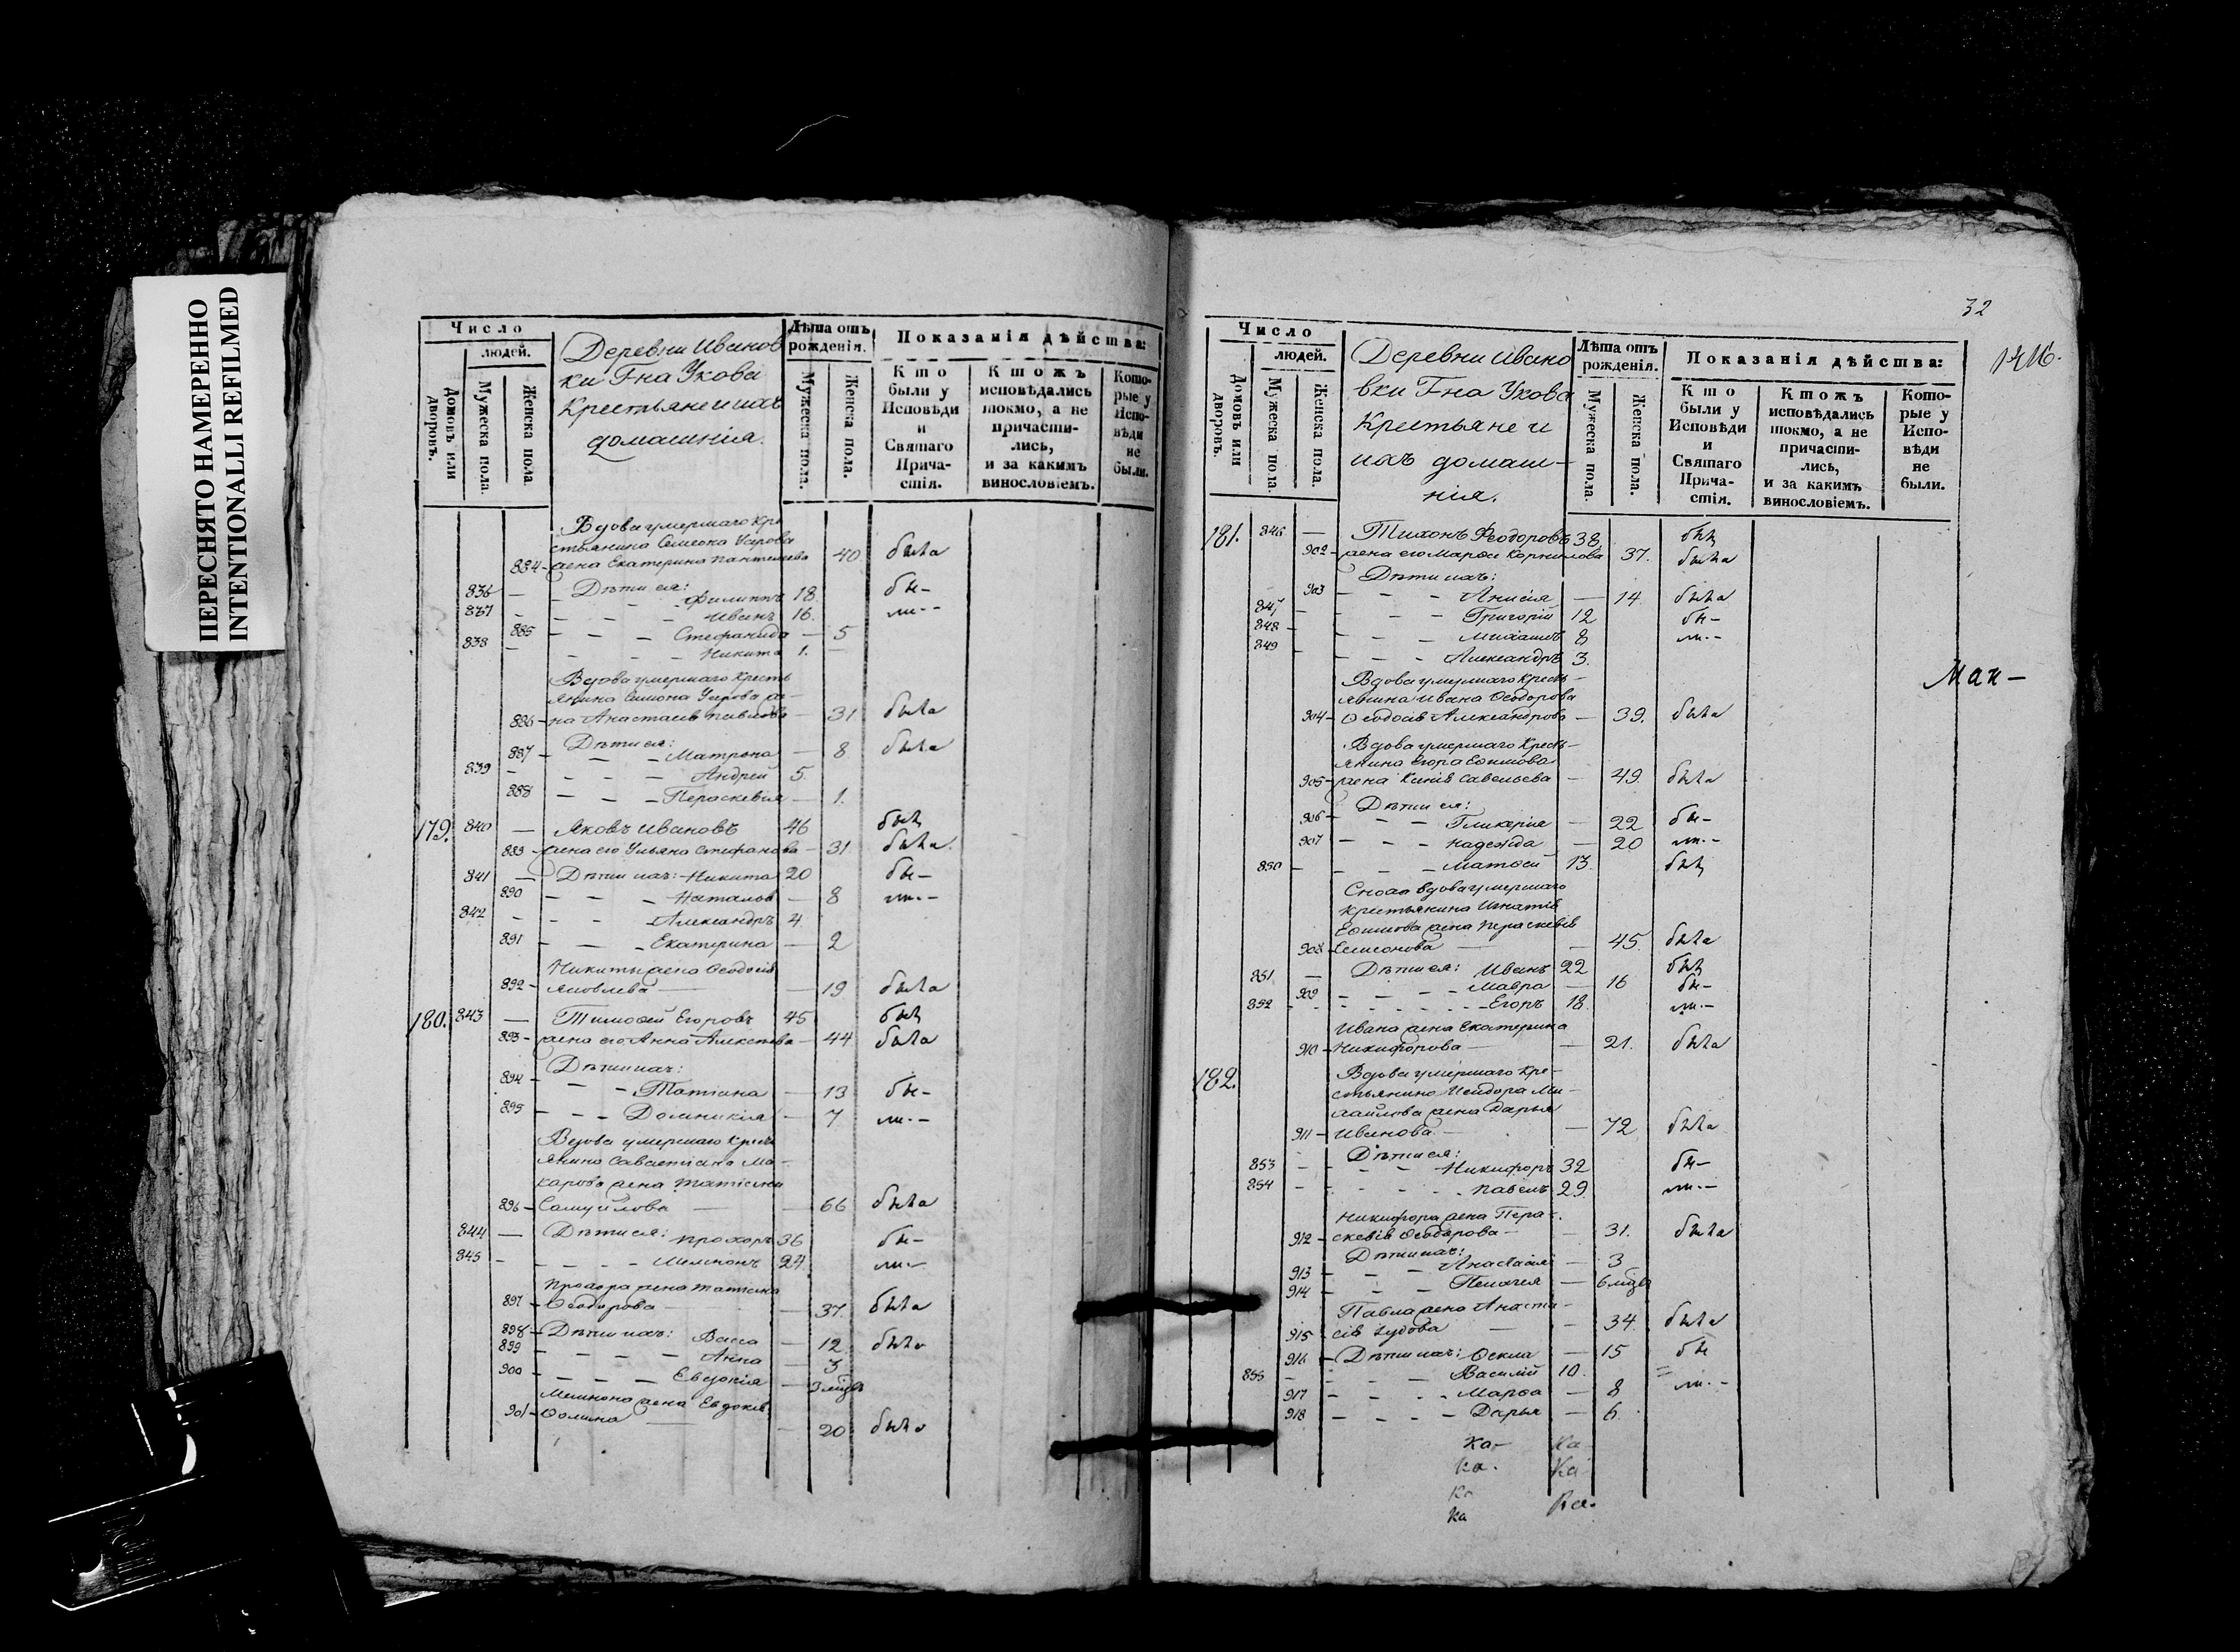 ПЕРЕСНЯТО НАМЕРЕННО
INTENTIONALLI REFILMED
Число
людей.
Домовъ или дворовъ.
Мужеска пола.
Женска пола.
Деревни Иванов
ки Гна Укова
Крестьяне и ихъ
домашнія.
Лѣта отъ рожденія.
Мужеска пола.
Женска пола.
Показанія дѣйства:
Кто были у Исповѣди и Святаго Причастія.
Ктожъ исповѣдались токмо, а не причастились, и за какимъ винословіемъ.
Которые у Исповѣди не были.
Вдова умершаго кре
стьянина Семена
884 - жена Екатерина 40 была
Дѣти ея:
836 — Филиппъ 18 бы-
837 - Иванъ 16. ли.-
885 Стефанида — 5
838 - Никита 1.
Вдова умершаго кресть
янина Симона
886 - на Анастасія Павлова — 31 была
Дѣти ея:
887 - Матрона — 8 была
839 - Андрей 5.
888 — Параскевія — 1.
179. 840 — Яковъ Ивановъ 46 былъ
889 - жена его Ульяна Стефанова — 31 была.
841 — Дѣти ихъ: Никита 20 бы-
890 Наталья — 8 ли.-
842 - Александръ 4
891 Екатерина — 2
Никиты жена Ѳеодосія
892 - Яковлева — 19 была
180. 843 — Тимоѳей Егоровъ 45 былъ
893 - жена его Анна Алексѣева — 44 была
Дѣти ихъ:
894 - Татіана — 13 бы-
895 - Домникія — 7 ли.-
Вдова умершаго крест
янина Савастіана Ма-
карова жена Татіана
896 - Самуйлова — 66 была
844 — Дѣти ея: Прохоръ 36 бы-
845 - Мемнонъ 24 ли.-
Прохора жена Татіана
897 - Ѳеодорова — 37. была
898 - Дѣти ихъ: Васса — 12 была
899 - Анна — 3
900 - Евдокія — 3 мцъ
Мемнона жена Евдокія
901 - Ѳомина — 20 была
32
Число
людей.
Домовъ или дворовъ.
Мужеска пола.
Женска пола.
Деревни Ивано
вки Гна Укова
Крестьяне и
ихъ домаш-
нія.
Лѣта отъ рожденія.
Мужеска пола.
Женска пола.
Показанія дѣйства:
Кто были у Исповѣди и Святаго Причастія.
Ктожъ исповѣдались токмо, а не причастились, и за какимъ винословіемъ.
Которые у Исповѣди не были.
181. 846 — Тихонъ Ѳеодоровъ 38 былъ
902 - жена его Марѳа Корнилова 37. была
Дѣти ихъ:
903 - Анисія — 14. была
847 - Григорій 12 бы-
848 - Михаилъ 8 ли.-
849 - Александръ 3.
Вдова умершаго кресть-
янина Ивана Ѳеодорова
904 - Ѳеодосія Александрова — 39. была
Вдова умершаго Кресть-
янина Егора Еѳимова
905 - жена Савельева — 49 была
Дѣти ея:
906 - Гликерія — 22 бы-
907 - Надежда — 20 ли.-
850 - Матѳей 13. былъ
Сноха вдова умершаго
крестьянина Игнатія
Еѳимова жена Параскевія
908 - Семенова — 45. была
851 — Дѣти ея: Иванъ 22 былъ
909 - Мавра — 16 бы-
852 - Егоръ 18. ли.-
Ивана жена Екатерина
910 - Никифорова — 21. была
182. Вдова умершаго Кре-
стьянина Исидора Ми-
хайлова жена Дарья
911 - Иванова — 72 была
Дѣти ея:
853 - Никифоръ 32 бы-
854 - Павелъ 29. ли.-
Никифора жена Пара-
912 - скевія Ѳеодорова — 31. была
Дѣти ихъ:
913 - Анастасія — 3
914 - Пелагея — 6 мцъ
Павла жена Анаста-
915 - сія — 34. была
916 - Дѣти ихъ: Ѳекла — 15 бы
855 - Василій 10.
917 - Марѳа — 8 ли.-
918 - Дарья — 6.
Ка- Ка
Ка. Ка
Ка Ка.
Ка
Мак —